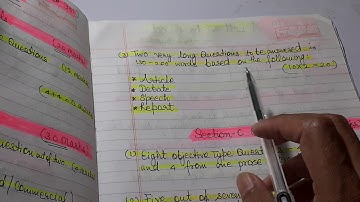 (20 marks)
Questions
(3) Two very long Questions to be answered in
words based on the following:
(10×2=20)
* Article
* Debate
* Speech
* Report
(30 marks)
Section-C
(1) Eight objective Type Quest
question out of two
and 4 from one prose
/Commercial)
Five out of seven